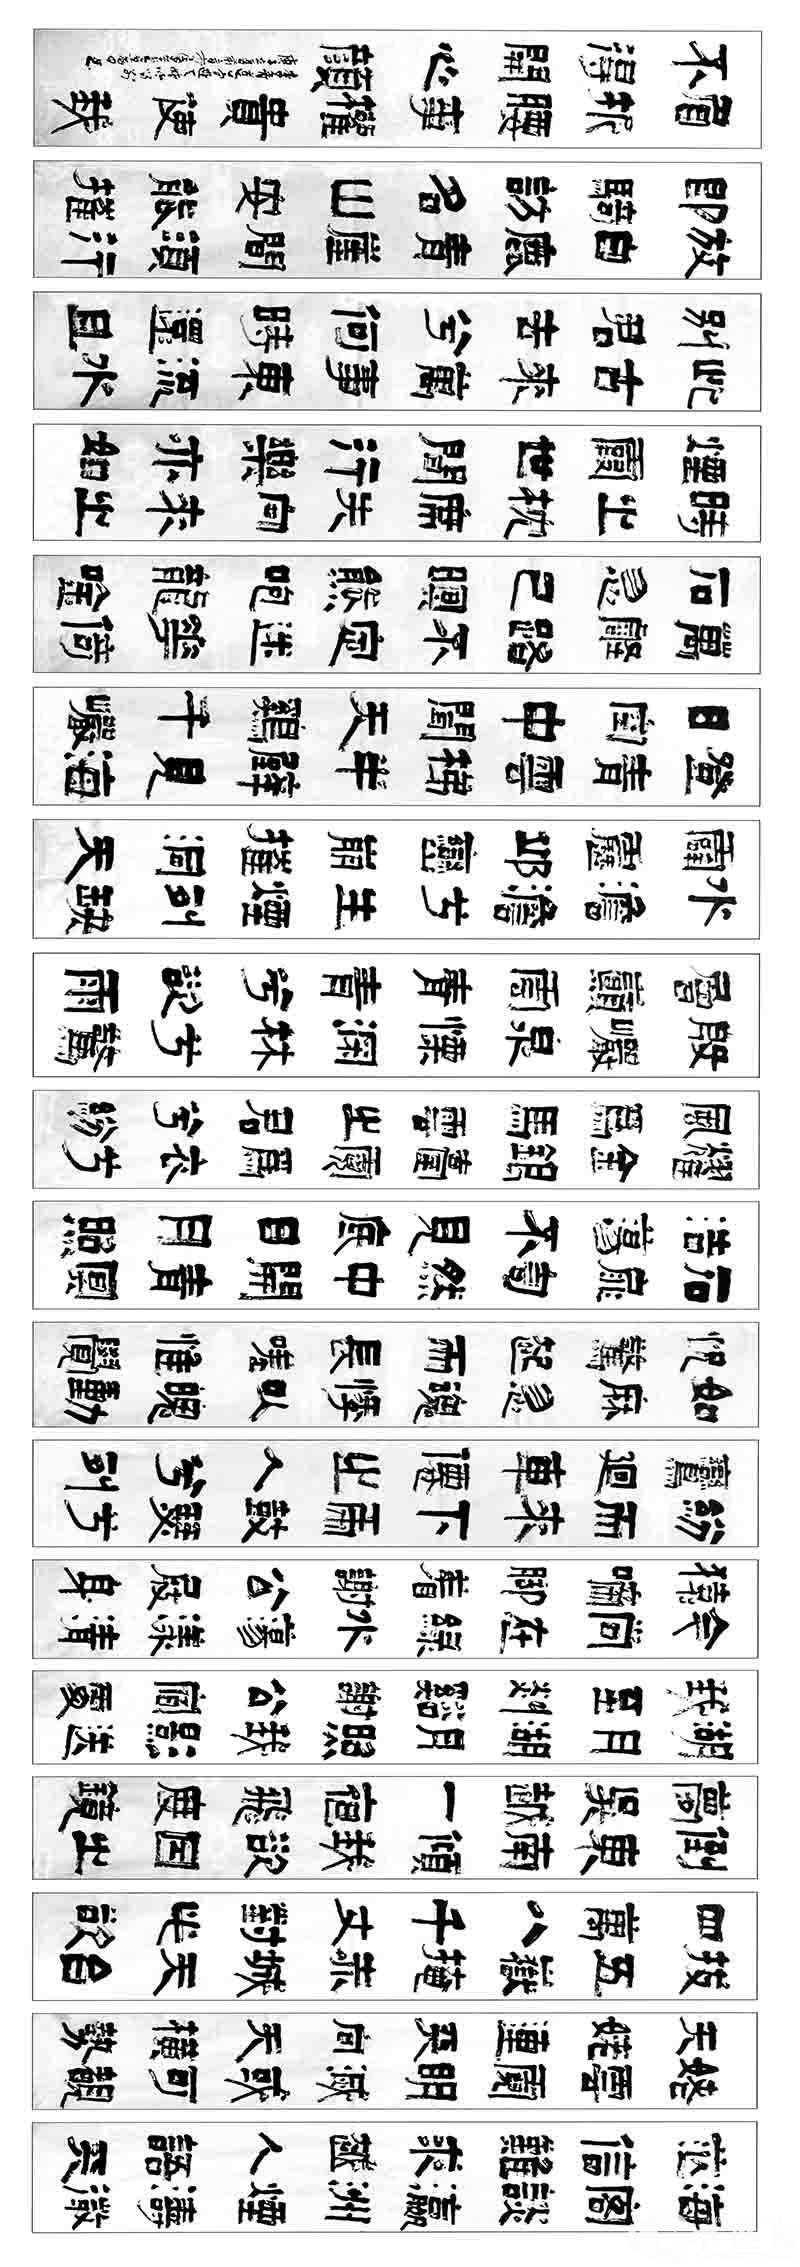 海客談瀛洲煙濤微
茫信難求越人語天
姥雲霞明滅或可覩
天姥連天向天橫勢
拔五嶽掩赤城天台
四萬八千丈對此欲
倒東南傾我欲因之
夢吳越一夜飛度鏡
湖月湖月照我影送
我至剡谿謝公宿處
今尚在綠水蕩漾清
猿啼腳着謝公屐身
登青雲梯半壁見海
日空中聞天雞千巖
萬轉路不定迷花倚
石忽已暝熊咆龍唫
殷巖泉慄深林兮驚
層巔雲青青兮欲雨
水澹澹兮生煙列缺
霹靂邱巒崩摧洞天
石扉訇然中開青冥
浩蕩不見底日月照
耀金銀臺霓爲衣兮
風爲馬雲之君兮紛
紛而來下虎鼓瑟兮
鸞迴車僊之人兮列
如麻忽魂悸以魄動
怳驚起而長嗟惟覺
時之枕席失向來之
煙霞世間行樂亦如
此古來萬事東流水
別君去兮何時還且
放白鹿青崖間須行
即騎訪名山安能摧
眉折腰事權貴使我
不得開心顏